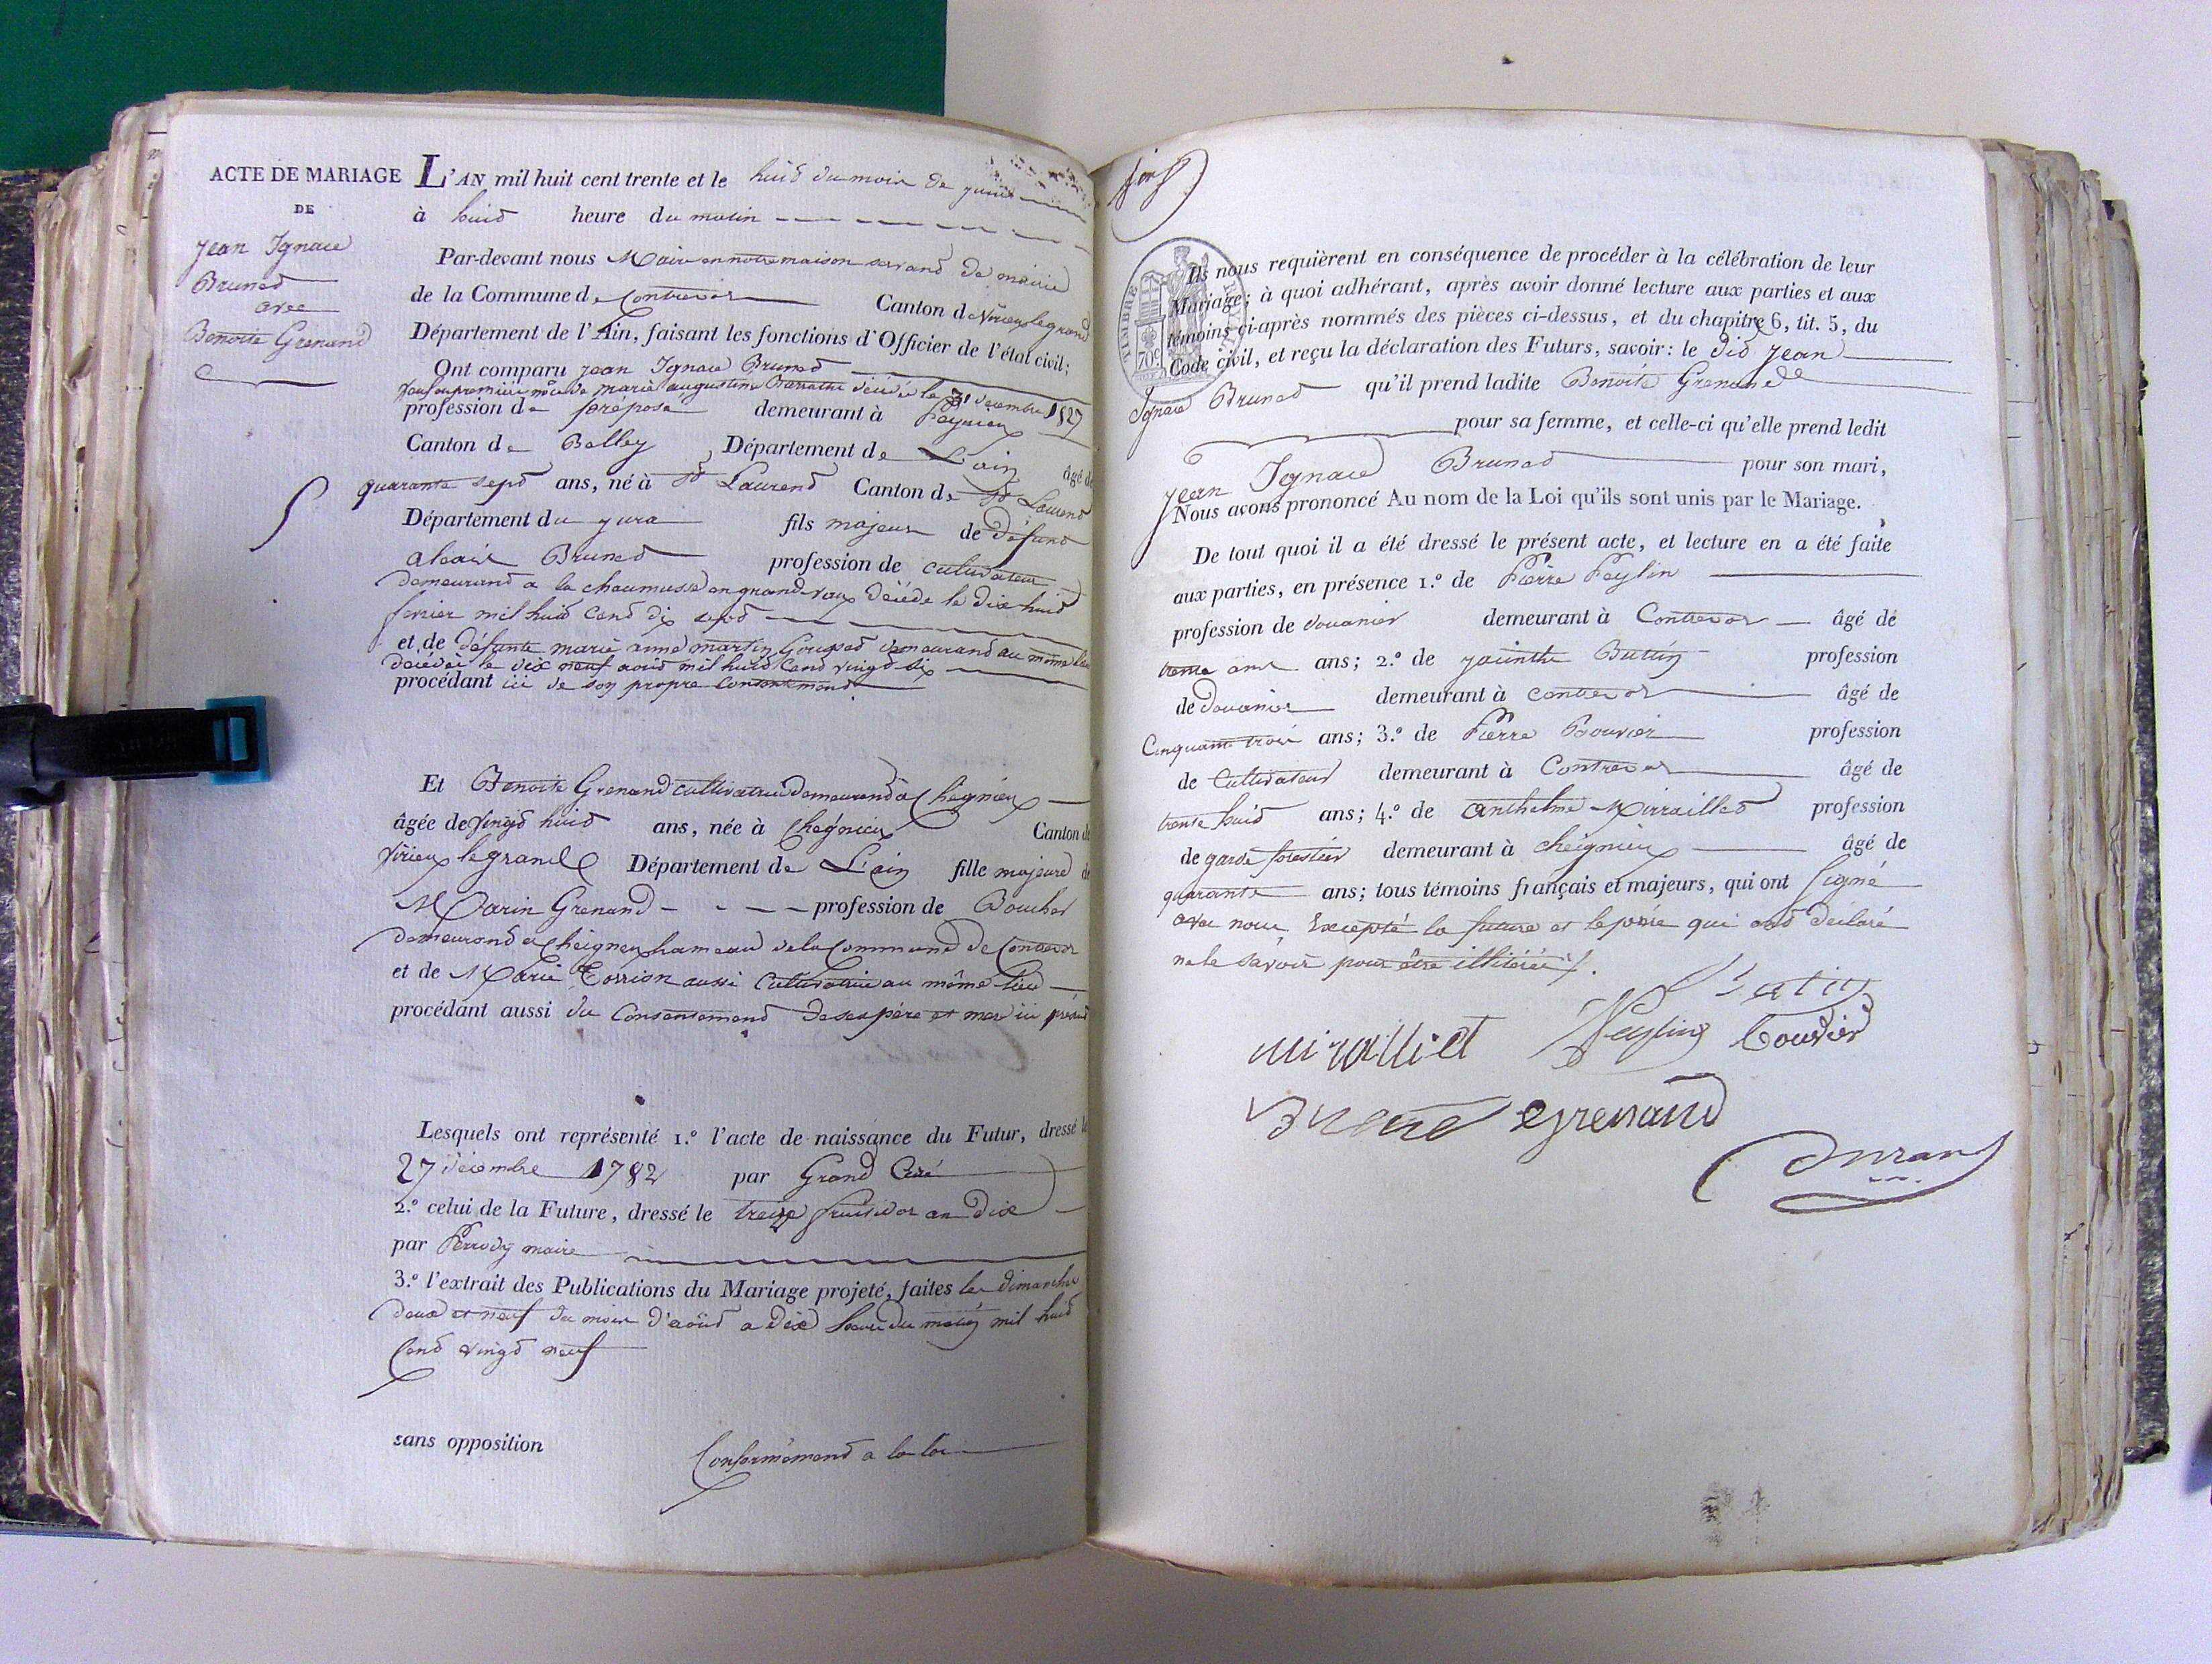 ACTE DE MARIAGE
DE
Jean Ignace
Brunet
avec
Benoite Grenand
L'AN mil huit cent trente et le huit du mois de
à huit heure du matin
Par-devant nous Maire en notre maison servant de mairie
de la Commune de Contrevoz Canton de Virieu le grand
Département de l'Ain, faisant les fonctions d'Officier de l'état civil;
Ont comparu Jean Ignace Brunet
marie augustine décédée le 31 decembre 1827
profession de préposé demeurant à Peyrieu
Canton de Belley Département de L'ain âgé de
quarante sept ans, né à St Laurent Canton de St Laurent
Département du jura fils majeur de défunt
alexis Brunet profession de cultivateur
demeurant a la chaumusse en grandvaux décédé le dix huit
fevrier mil huit cent dix sept
et de défunte marie anne martin Gousset demeurant au même lieu
décédée le dix neuf août mil huit cent vingt six
procédant ici de son propre consentement
Et Benoite Grenand cultivatrice demeurant à Cheignieu
âgée de vingt huit ans, née à Cheignieu Canton de
Virieu le grand Département de L'ain fille majeure de
Marin Grenand profession de Boucher
demeurant a Cheigneu hameau de la Commune de Contrevoz
et de Marie Torrion aussi Cultivatrice au même lieu
procédant aussi du Consentement de ses père et mere ici présent
Lesquels ont représenté 1.º l'acte de naissance du Futur, dressé le
27 decembre 1782 par Grand Curé
2.º celui de la Future, dressé le treize fructidor an dix
par Perrody maire
3.º l'extrait des Publications du Mariage projeté, faites les dimanche
deux et neuf du mois d'août a dix heure du matin mil huit
Cent vingt neuf
sans opposition Conformément a la loi
70 c
Ils nous requièrent en conséquence de procéder à la célébration de leur
Mariage; à quoi adhérant, après avoir donné lecture aux parties et aux
témoins ci-après nommés des pièces ci-dessus, et du chapitre 6, tit. 5, du
Code civil, et reçu la déclaration des Futurs, savoir: le dit Jean
Ignace Brunet qu'il prend ladite Benoite Grenand
pour sa femme, et celle-ci qu'elle prend ledit
Jean Ignace Brunet pour son mari,
Nous avons prononcé Au nom de la Loi qu'ils sont unis par le Mariage.
De tout quoi il a été dressé le présent acte, et lecture en a été faite
aux parties, en présence 1.º de Pierre Peylin
profession de douanier demeurant à Contrevoz âgé de
trente ans ans; 2.º de jacinthe Buttin profession
de douanier demeurant à contrevoz âgé de
Cinquante trois ans; 3.º de Pierre Bouvier profession
de Cultivateur demeurant à Contrevoz âgé de
trente huit ans; 4.º de anthelme Mirraillet profession
de garde forestier demeurant à cheignieu âgé de
quarante ans; tous témoins français et majeurs, qui ont signé
avec nous, Excepté la future et le père qui ont déclaré
ne le savoir pour être illitérés.
miralliet Peylin bouvier
Brunet grenand